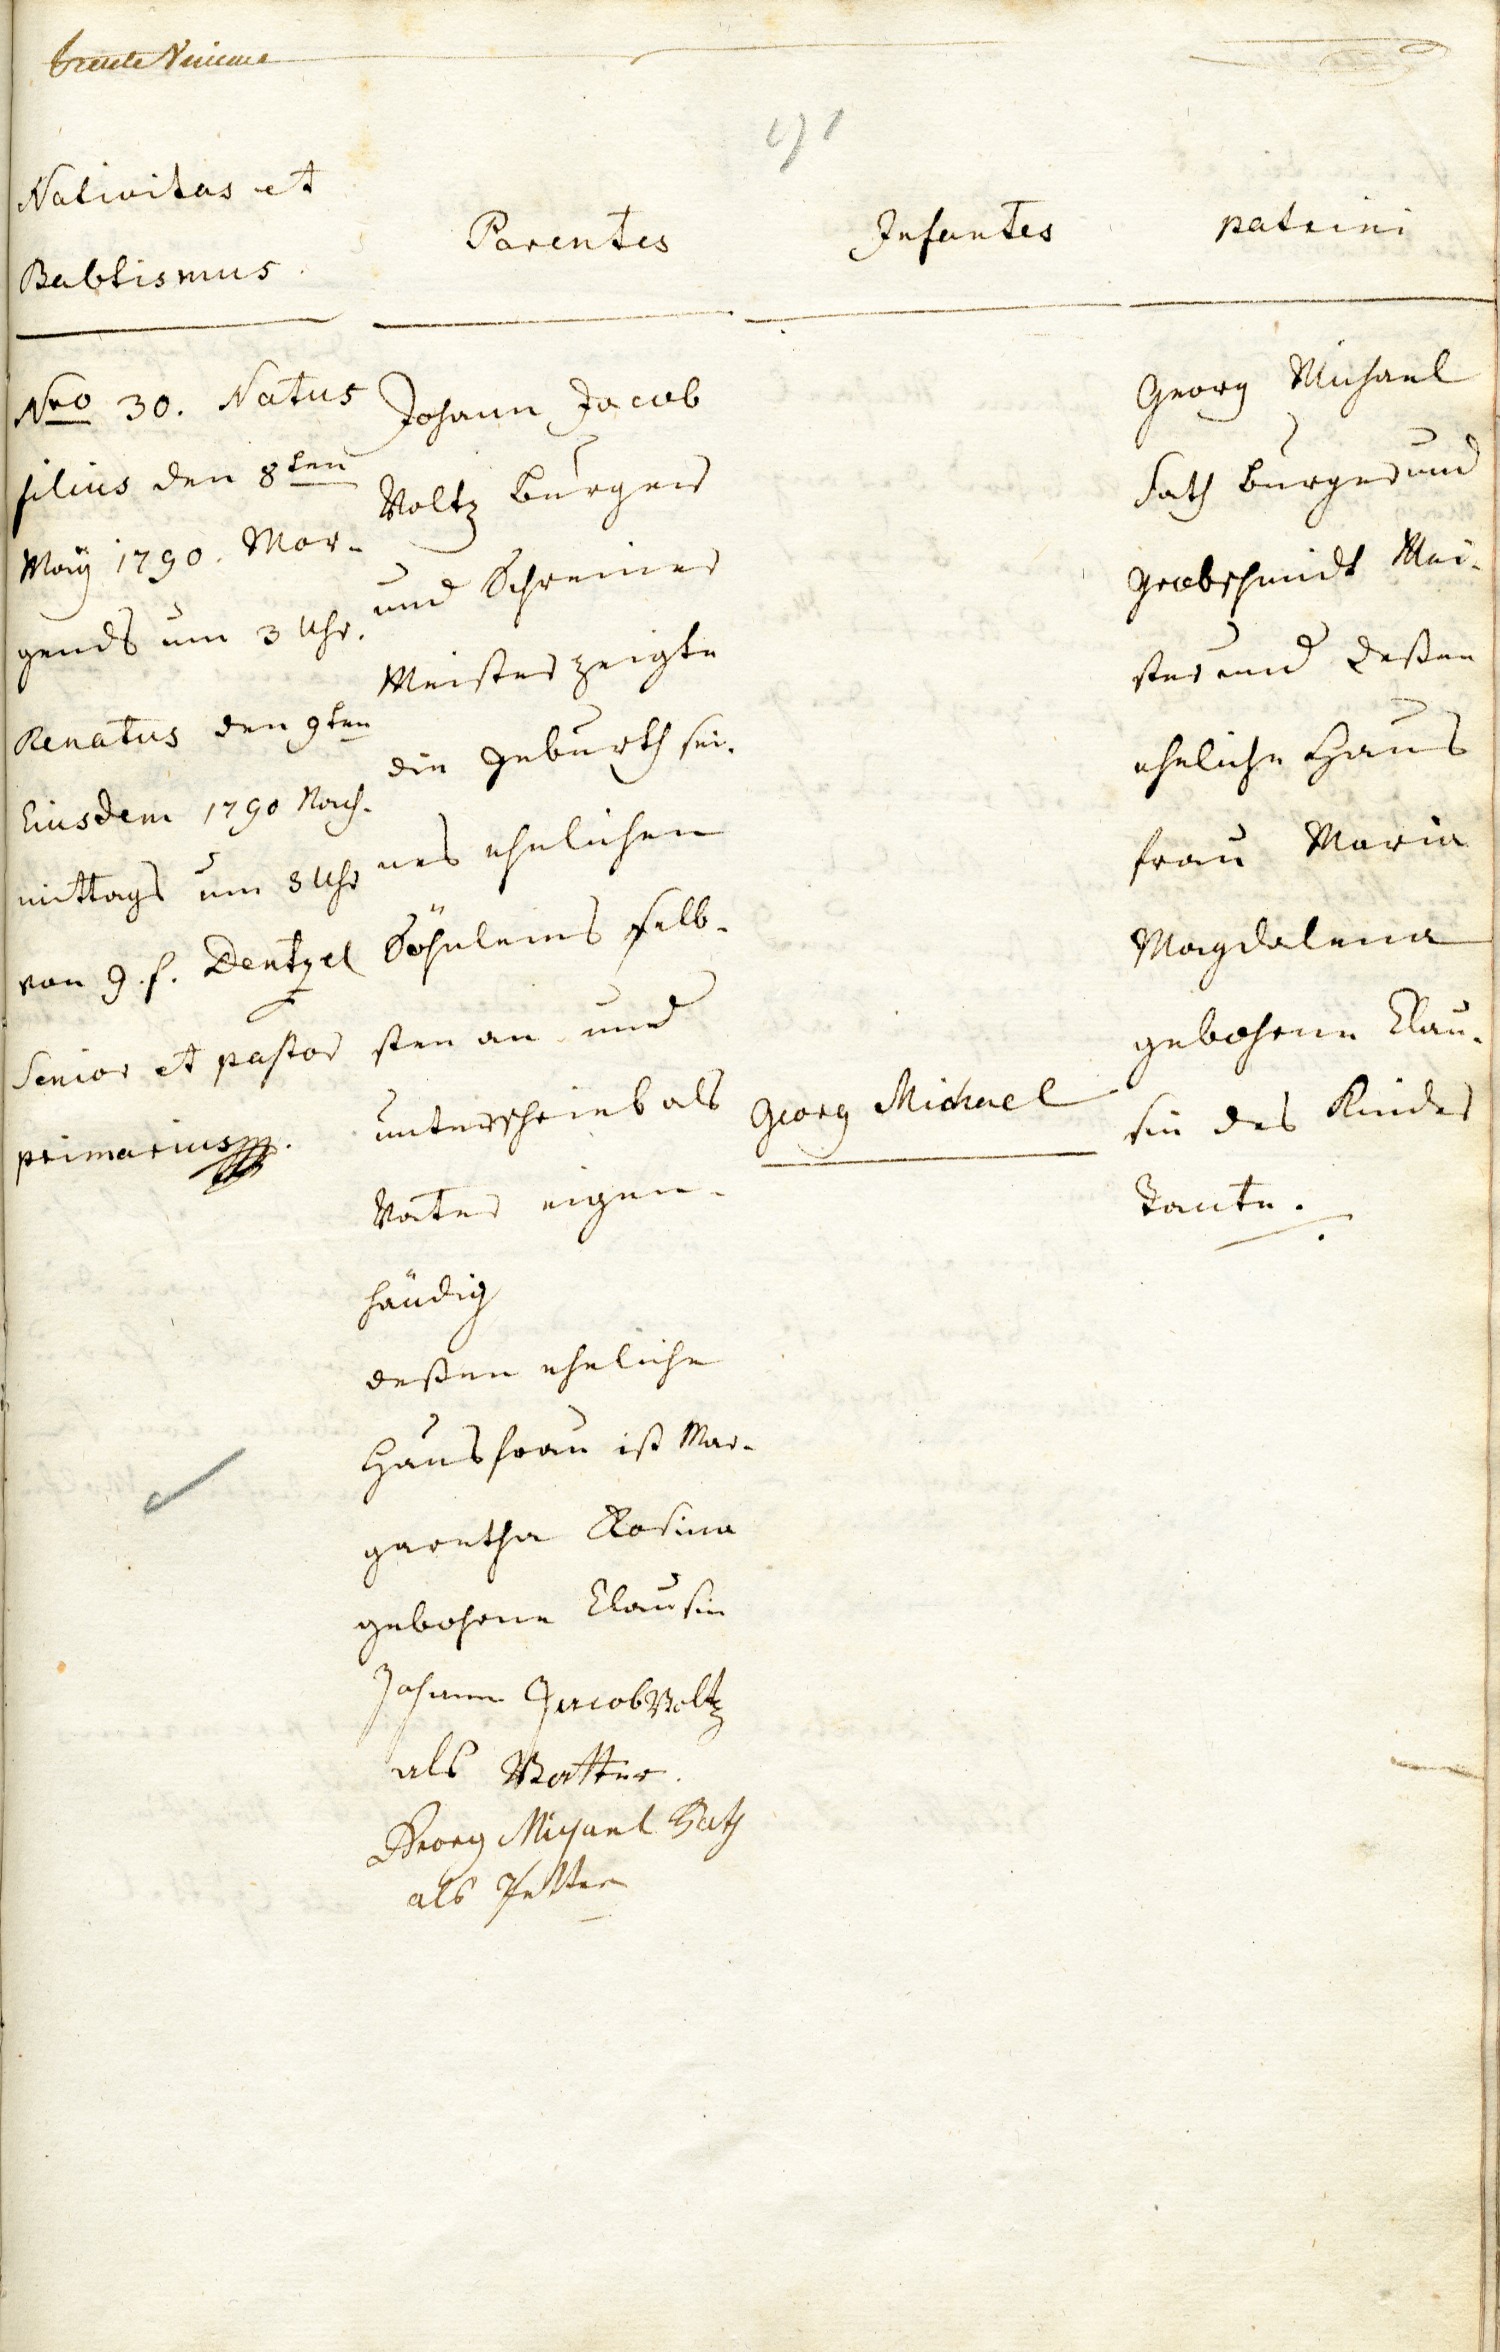 trente Nieume
191
Nativitas et
Babtismus.
Parentes
Infantes
patrini
Nro 30. Natus
filius den 8ten
Maÿ 1790. Mor-
gends um 3 Uhr.
Renatus den 9ten
Eiusdem 1790 Nach-
mittags um 3 Uhr
von g. f. Dentzel
Senior et pastor
primarius.
Johann Jacob
Voltz burger
und Schreiner
Meister zeigte
die geburth sei-
nes ehelichen
Söhnleins selb-
sten an und
unterschrieb als
Vater eigen-
händig
deßen eheliche
Hausfrau ist Mar-
garetha Rosina
gebohrne Clausin
Johann Jacob Voltz
als Vatter.
Georg Michael Hath
als Petter
Georg Michael
Georg Michael
burger und
grobschmidt Mei-
ster und deßen
eheliche Haus
frau Maria
Magdalena
gebohrne Clau-
sin des Kindes
Tante.